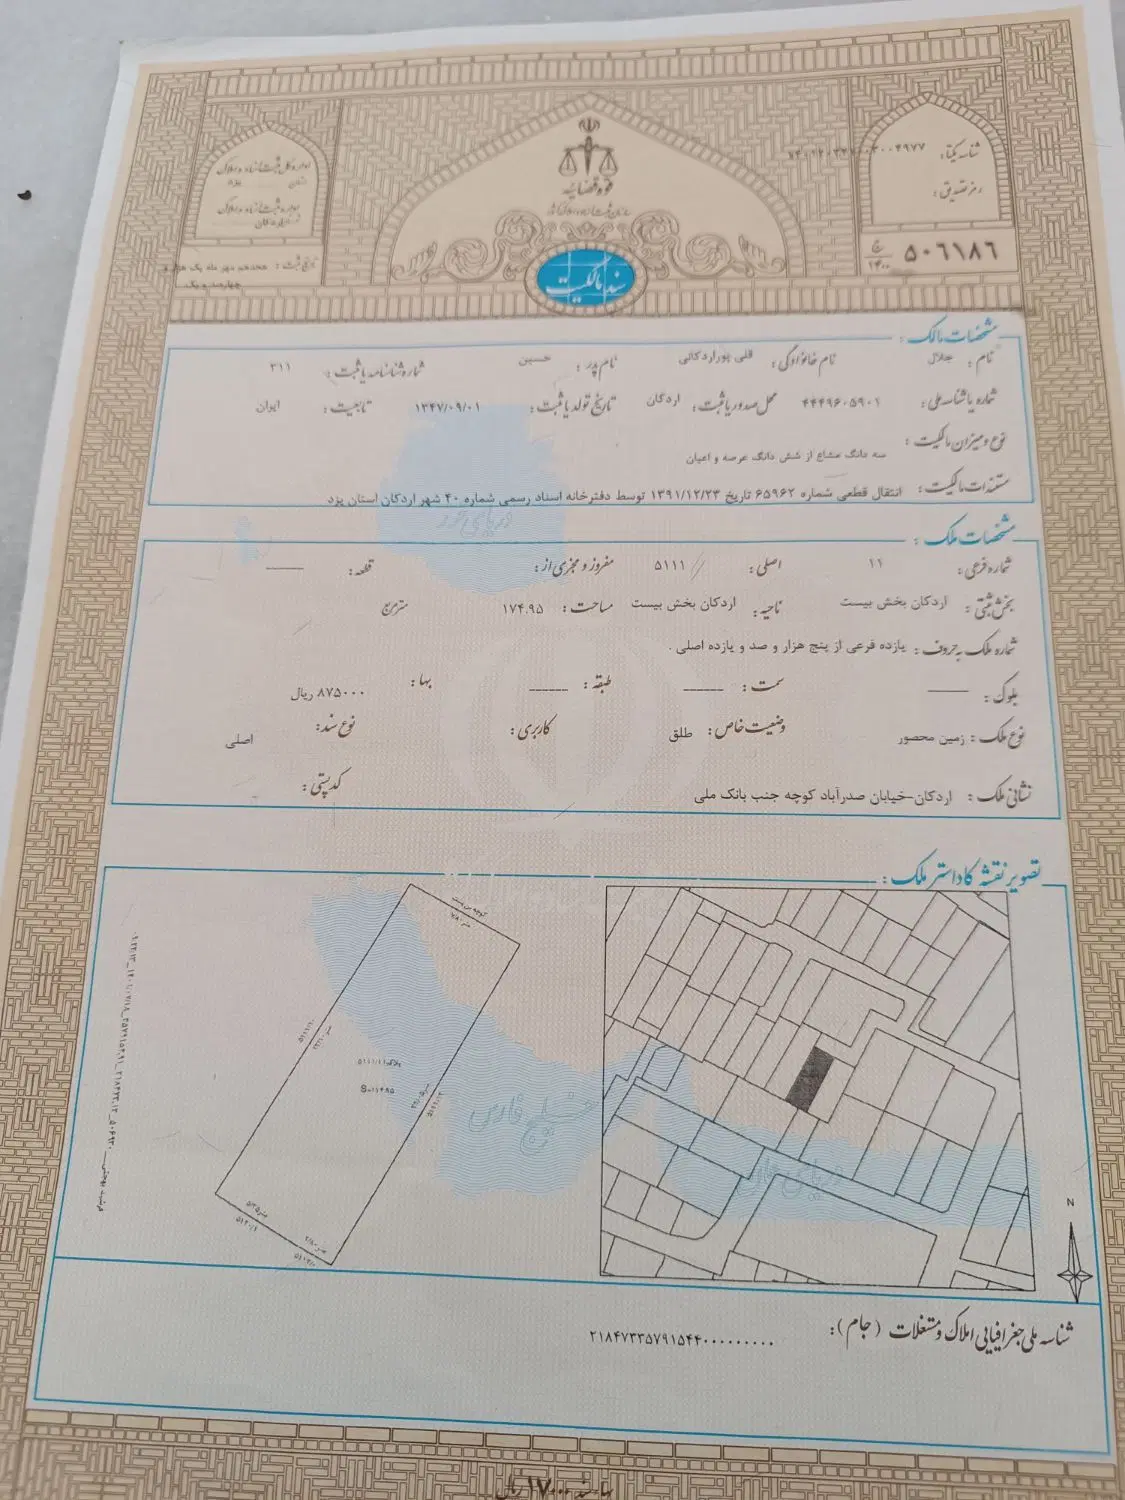 شناسه یکتا:
رمز تصدیق:
۵۰۶۱۸۶ ج ۱۴۰۰
قوه قضائیه
سازمان ثبت اسناد و املاک کشور
اداره کل ثبت اسناد و املاک
استان یزد
اداره ثبت اسناد و املاک
اردکان
تاریخ ثبت: هجدهم مهر ماه یک هزار و
چهارصد و یک
سند مالکیت
مشخصات مالک:
نام: جلال نام خانوادگی: قلی پوراردکانی نام پدر: حسین شماره شناسنامه یا ثبت: ۳۱۱
شماره یا شناسه ملی: ۴۴۴۹۶۰۵۹۰۱ محل صدور یا ثبت: اردکان تاریخ تولد یا ثبت: ۱۳۴۷/۰۹/۰۱ تابعیت: ایران
نوع و میزان مالکیت: سه دانگ مشاع از شش دانگ عرصه و اعیان
مستندات مالکیت: انتقال قطعی شماره ۶۵۹۶۲ تاریخ ۱۳۹۱/۱۲/۲۳ توسط دفترخانه اسناد رسمی شماره ۴۰ شهر اردکان استان یزد
دریای خزر
مشخصات ملک:
شماره فرعی: ۱۱ اصلی: ۵۱۱۱ مفروز و مجزی از: قطعه: ——
بخش ثبتی: اردکان بخش بیست ناحیه: اردکان بخش بیست مساحت: ۱۷۴.۹۵ مترمربع
شماره ملک به حروف: یازده فرعی از پنج هزار و صد و یازده اصلی .
بلوک: —— سمت: ------ طبقه: ------ بها: ۸۷۵۰۰۰ ریال
نوع ملک: زمین محصور وضعیت خاص: طلق کاربری: نوع سند: اصلی
نشانی ملک: اردکان-خیابان صدرآباد کوچه جنب بانک ملی کدپستی:
تصویر نقشه کاداستر ملک:
کوچه بن بست
خلیج فارس
دریای عمان
N
شناسه ملی جغرافیایی املاک و مستغلات (جام): ۲۱۸۴۷۳۳۵۷۹۱۵۴۴۰۰۰۰۰۰۰۰۰۰